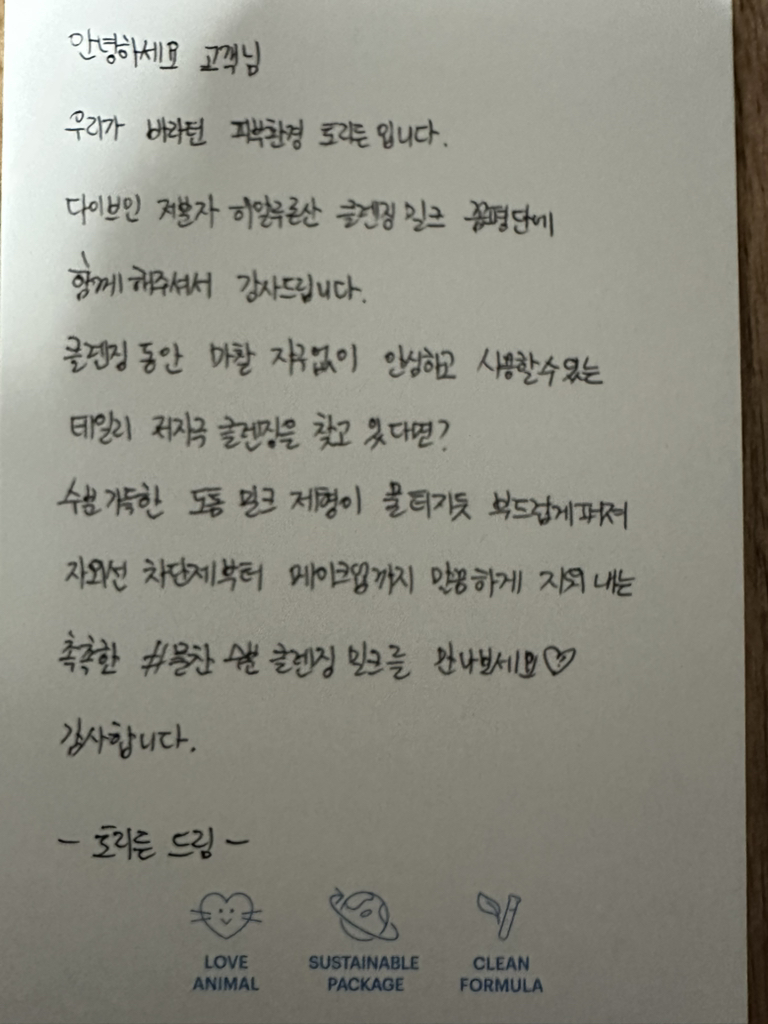 안녕하세요 고객님
우리가 바라던 피부환경 토리든입니다.
다이브인 저분자 히알루론산 클렌징 밀크 꼼평단에
함께해주셔서 감사드립니다.
클렌징 동안 마찰 자극없이 안심하고 사용할수있는
데일리 저자극 클렌징을 찾고 있다면?
수분가득한 도톰 밀크 제형이 물 터지듯 부드럽게퍼져
자외선 차단제부터 메이크업까지 말끔하게 지워내는
촉촉한 #물찬 수분 클렌징 밀크를 만나보세요♡
감사합니다.
- 토리든 드림 -
LOVE ANIMAL
SUSTAINABLE PACKAGE
CLEAN FORMULA